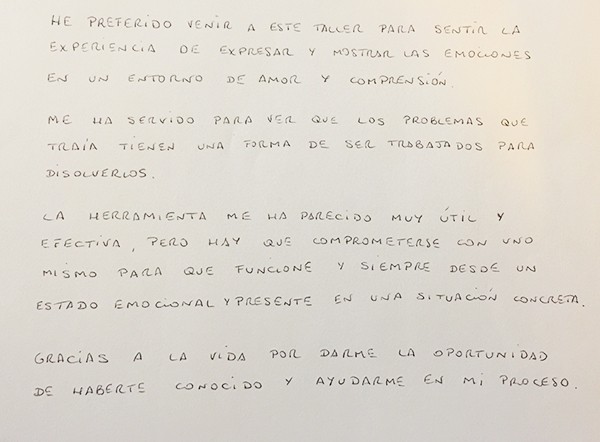 HE PREFERIDO VENIR A ESTE TALLER PARA SENTIR LA
EXPERIENCIA DE EXPRESAR Y MOSTRAR LAS EMOCIONES
EN UN ENTORNO DE AMOR Y COMPRENSIÓN.
ME HA SERVIDO PARA VER QUE LOS PROBLEMAS QUE
TRAÍA TIENEN UNA FORMA DE SER TRABAJADOS PARA
DISOLVERLOS.
LA HERRAMIENTA ME HA PARECIDO MUY ÚTIL Y
EFECTIVA, PERO HAY QUE COMPROMETERSE CON UNO
MISMO PARA QUE FUNCIONE Y SIEMPRE DESDE UN
ESTADO EMOCIONAL Y PRESENTE EN UNA SITUACIÓN CONCRETA.
GRACIAS A LA VIDA POR DARME LA OPORTUNIDAD
DE HABERTE CONOCIDO Y AYUDARME EN MI PROCESO.